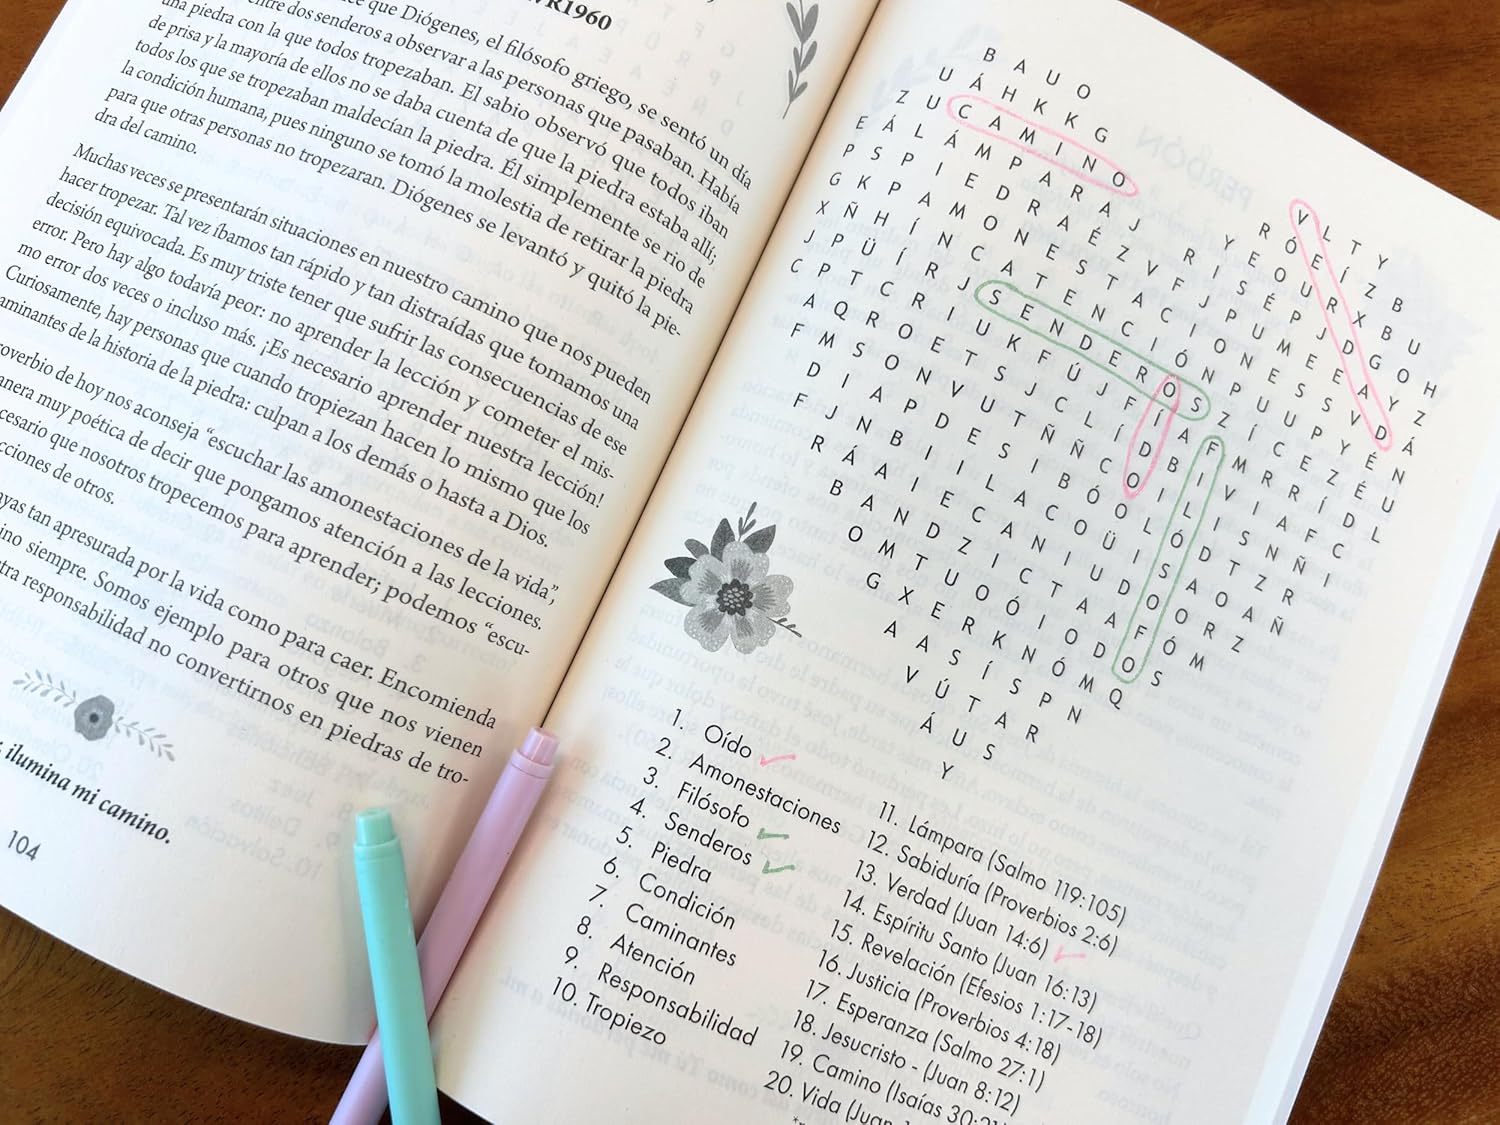 VR1960
ce que Diógenes, el filósofo griego, se sentó un día
entre dos senderos a observar a las personas que pasaban. Había
una piedra con la que todos tropezaban. El sabio observó que todos iban
de prisa y la mayoría de ellos no se daba cuenta de que la piedra estaba allí;
todos los que se tropezaban maldecían la piedra. Él simplemente se rio de
la condición humana, pues ninguno se tomó la molestia de retirar la piedra
para que otras personas no tropezaran. Diógenes se levantó y quitó la pie-
dra del camino.
Muchas veces se presentarán situaciones en nuestro camino que nos pueden
hacer tropezar. Tal vez íbamos tan rápido y tan distraídas que tomamos una
decisión equivocada. Es muy triste tener que sufrir las consecuencias de ese
error. Pero hay algo todavía peor: no aprender la lección y cometer el mis-
mo error dos veces o incluso más. ¡Es necesario aprender nuestra lección!
Curiosamente, hay personas que cuando tropiezan hacen lo mismo que los
aminantes de la historia de la piedra: culpan a los demás o hasta a Dios.
roverbio de hoy nos aconseja “escuchar las amonestaciones de la vida”,
anera muy poética de decir que pongamos atención a las lecciones.
cesario que nosotros tropecemos para aprender; podemos “escu-
cciones de otros.
ayas tan apresurada por la vida como para caer. Encomienda
ino siempre. Somos ejemplo para otros que nos vienen
tra responsabilidad no convertirnos en piedras de tro-
, ilumina mi camino.
104
B A U O
U Á H K K G
Z U C A M I N O V L T Y
E Á L Á M P A R A J R Ó E Í Z B
Y E O U R X B U
R I S É P J D G O H
P S P I E D R A É Z V F J P U M E E A Y Z
G K P A M O N E S T A C I O N E S S V D Á
X Ñ H Í N C A T E N C I Ó N P U U P Y É N
J P Ü Í R J S E N D E R O S Z Í C E Z É U
C P T C R I U K F Ú J F Í A F M R R Í D L
A Q R O E T S J C L Í D B I V I A F C
F M S O N V U T Ñ Ñ C O I L I S N Ñ I
D I A P D E S I B Ó O L Ó D T Z R
F J N B I I L A C O Ü I S A O A Ñ
R Á A I E C A N I U D O O R Z
B A N D Z I C T A A F Ó M
O M T U O Ó I O D O S
G X E R K N Ó M Q
A A S Í S P N
V Ú T A R
Á U S
Y
1. Oído
2. Amonestaciones
3. Filósofo
4. Senderos
5. Piedra
6. Condición
7. Caminantes
8. Atención
9. Responsabilidad
10. Tropiezo
11. Lámpara (Salmo 119:105)
12. Sabiduría (Proverbios 2:6)
13. Verdad (Juan 14:6)
14. Espíritu Santo (Juan 16:13)
15. Revelación (Efesios 1:17-18)
16. Justicia (Proverbios 4:18)
17. Esperanza (Salmo 27:1)
18. Jesucristo - (Juan 8:12)
19. Camino (Isaías 30:21)
20. Vida (Juan